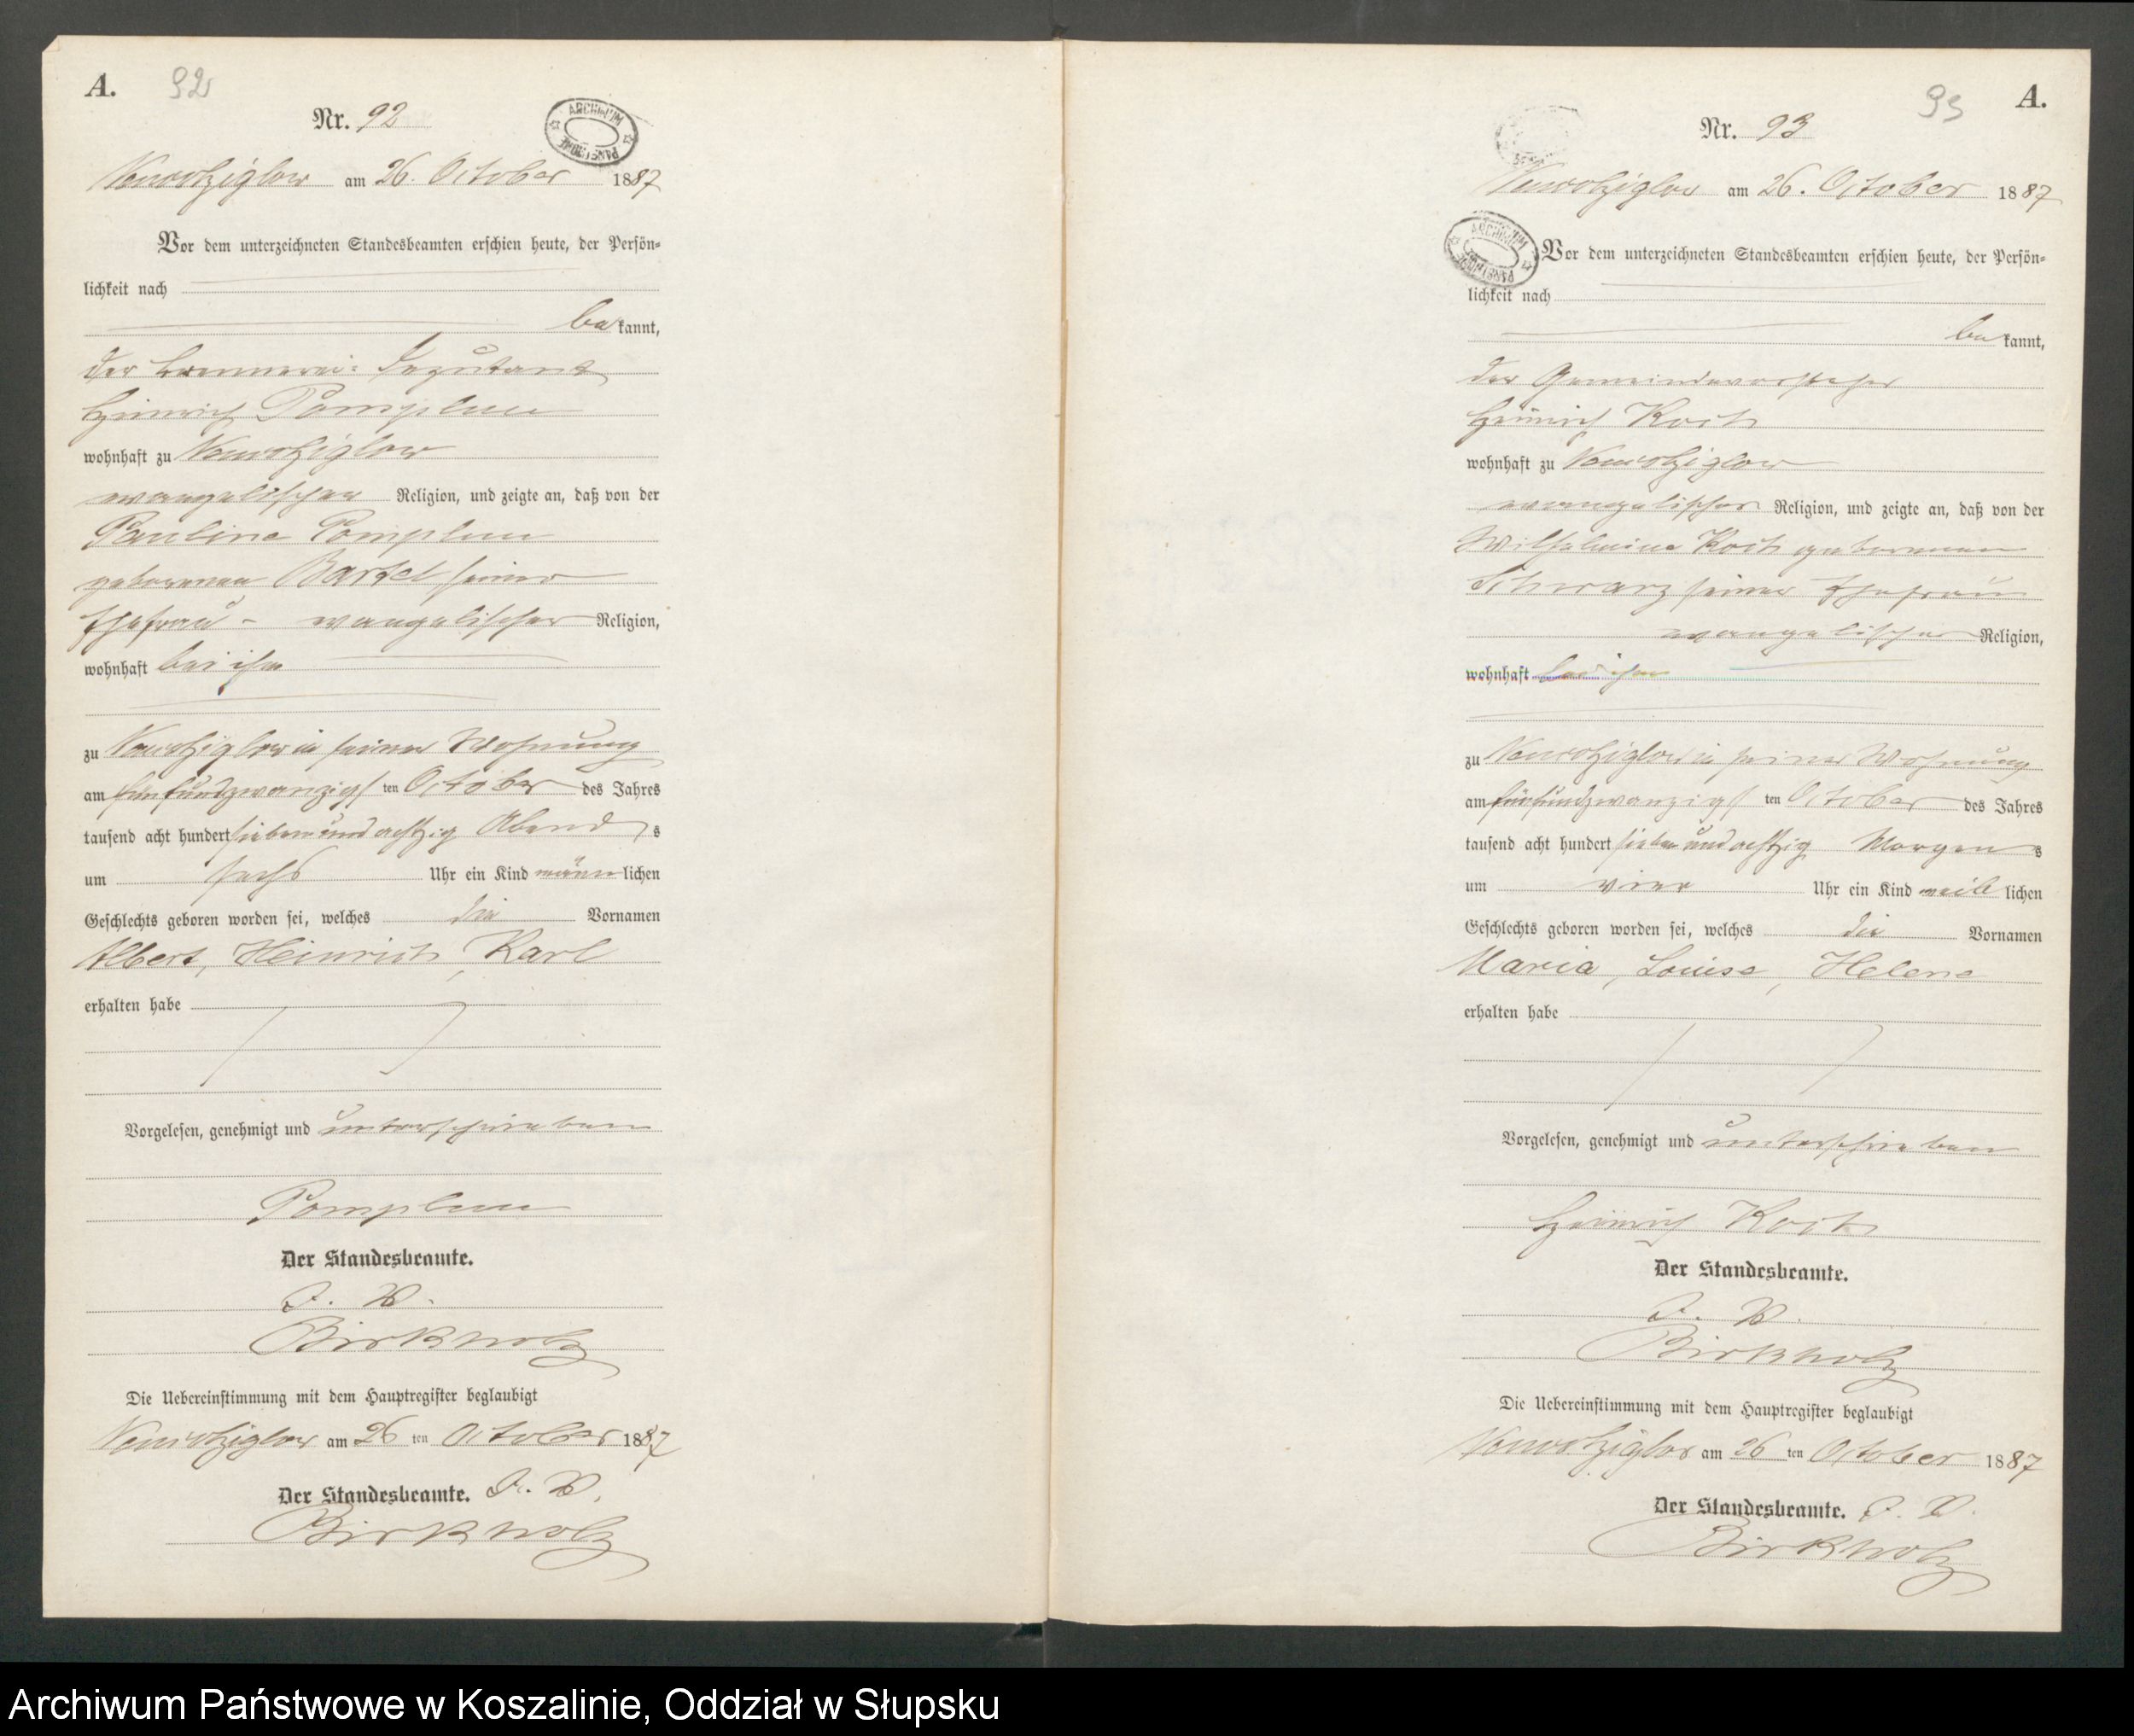 A. 92
Nr. 92
ARCHIWUM PAŃSTWOWE
Neuwotziglow am 26. October 1887
Vor dem unterzeichneten Standesbeamten erschien heute, der Persön=
lichkeit nach
be kannt,
der Brennerei= Deputant
Heinrich Pomplun
wohnhaft zu Neuwotziglow
evangelischer Religion, und zeigte an, daß von der
Pauline Pomplun
geborenen Bartel seiner
Ehefrau - evangelischer Religion,
wohnhaft bei ihm
zu Neuwotziglow in seiner Wohnung
am fünfundzwanzigs ten October des Jahres
tausend acht hundert sieben und achtzig Abend s
um sechs Uhr ein Kind männ lichen
Geschlechts geboren worden sei, welches die Vornamen
Albert, Heinrich, Karl
erhalten habe
Vorgelesen, genehmigt und unterschrieben
Pomplun
Der Standesbeamte.
J. V.
Birkholz
Die Uebereinstimmung mit dem Hauptregister beglaubigt
Neuwotziglow am 26 ten October 1887
Der Standesbeamte. J. V.
Birkholz
93 A.
Nr. 93
Neuwotziglow am 26. October 1887
ARCHIWUM PAŃSTWOWE
Vor dem unterzeichneten Standesbeamten erschien heute, der Persön=
lichkeit nach
be kannt,
der Gemeindevorsteher
Heinrich Koch
wohnhaft zu Neuwotziglow
evangelischer Religion, und zeigte an, daß von der
Wilhelmine Koch geborenen
Schwarz seiner Ehefrau
evangelischer Religion,
wohnhaft bei ihm
zu Neuwotziglow in seiner Wohnung
am fünfundzwanzigs ten October des Jahres
tausend acht hundert sieben und achtzig Morgen s
um vier Uhr ein Kind weib lichen
Geschlechts geboren worden sei, welches die Vornamen
Maria, Louise, Helene
erhalten habe
Vorgelesen, genehmigt und unterschrieben
Heinrich Koch
Der Standesbeamte.
J. V.
Birkholz
Die Uebereinstimmung mit dem Hauptregister beglaubigt
Neuwotziglow am 26 ten October 1887
Der Standesbeamte. J. V.
Birkholz
Archiwum Państwowe w Koszalinie, Oddział w Słupsku